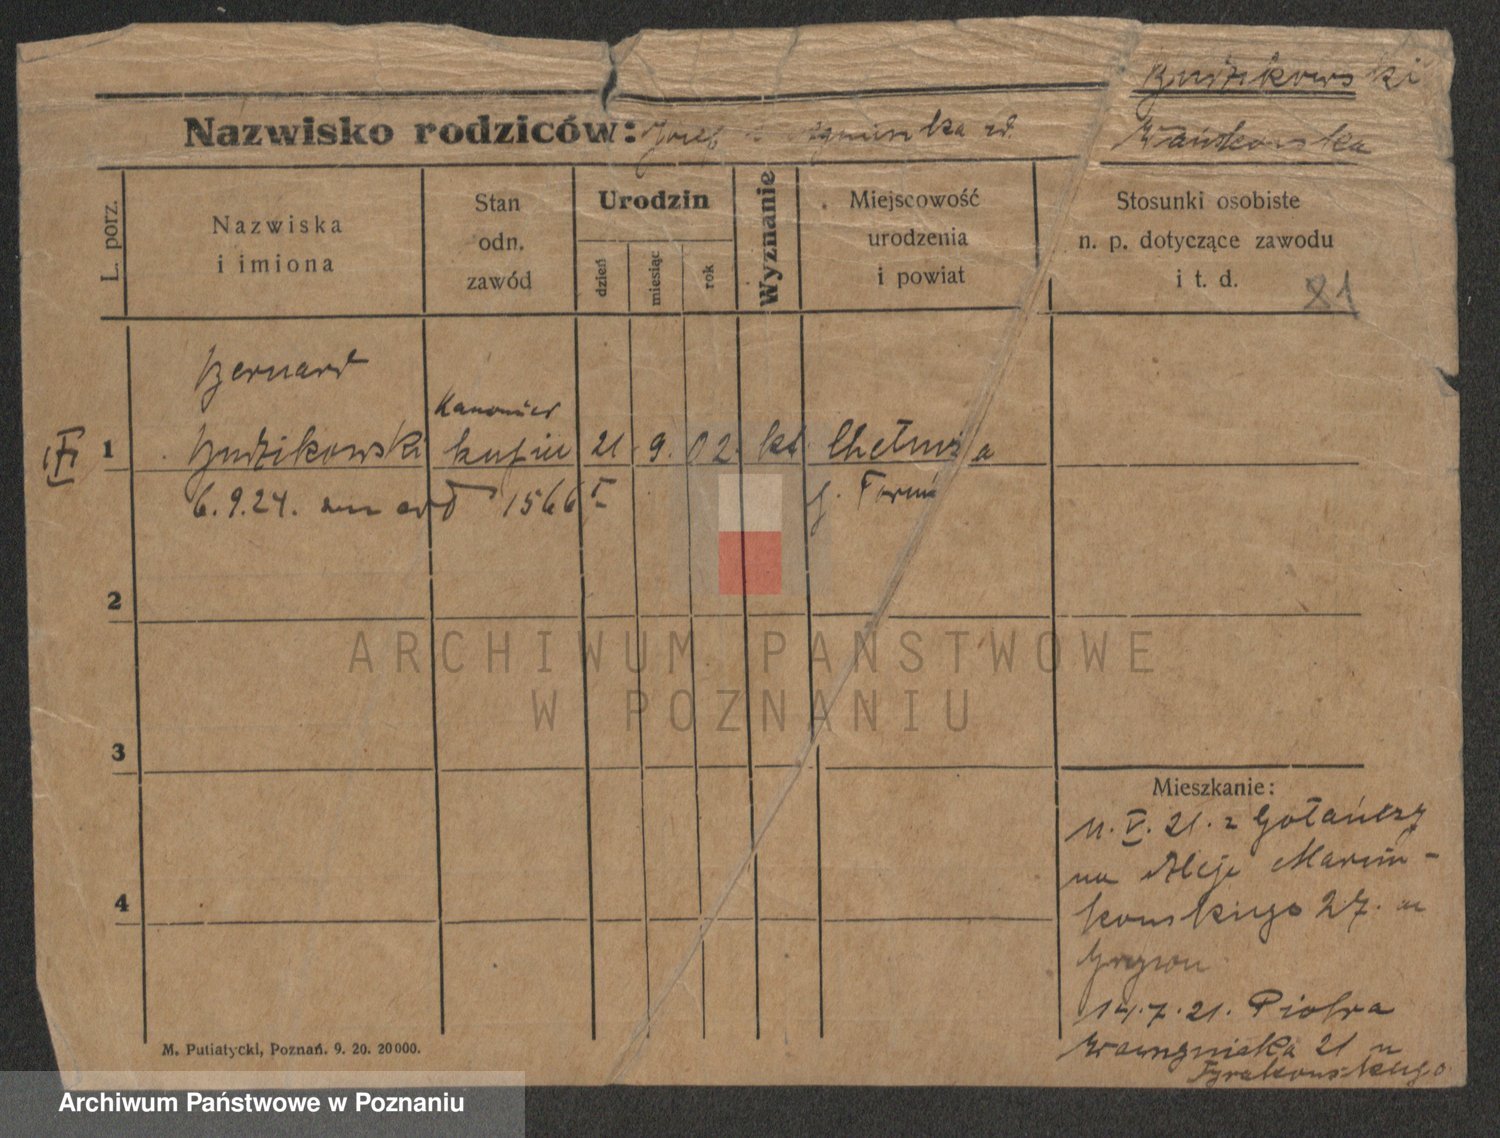 Budzikowski
Nazwisko rodziców: Józef i Agnieszka zd.
Wańkowska
L. porz.
Nazwiska
i imiona
Stan
odn.
zawód
Urodzin
dzień
miesiąc
rok
Wyznanie
Miejscowość
urodzenia
i powiat
Stosunki osobiste
n. p. dotyczące zawodu
i t. d.
21
Bernard
Kanonier
1 Budzikowski kupiec 21 9. 02. kt Chełmża
6.9.24. 1566 p. Toruń
2
3
4
Mieszkanie:
11. V. 21. z Gołańczy
na Aleje Marcin-
kowskiego 27. u
14.7.21. Piotra
Wawrzyniaka 21 u
M. Putiatycki, Poznań. 9. 20. 20000.
ARCHIWUM PAŃSTWOWE
W POZNANIU
Archiwum Państwowe w Poznaniu